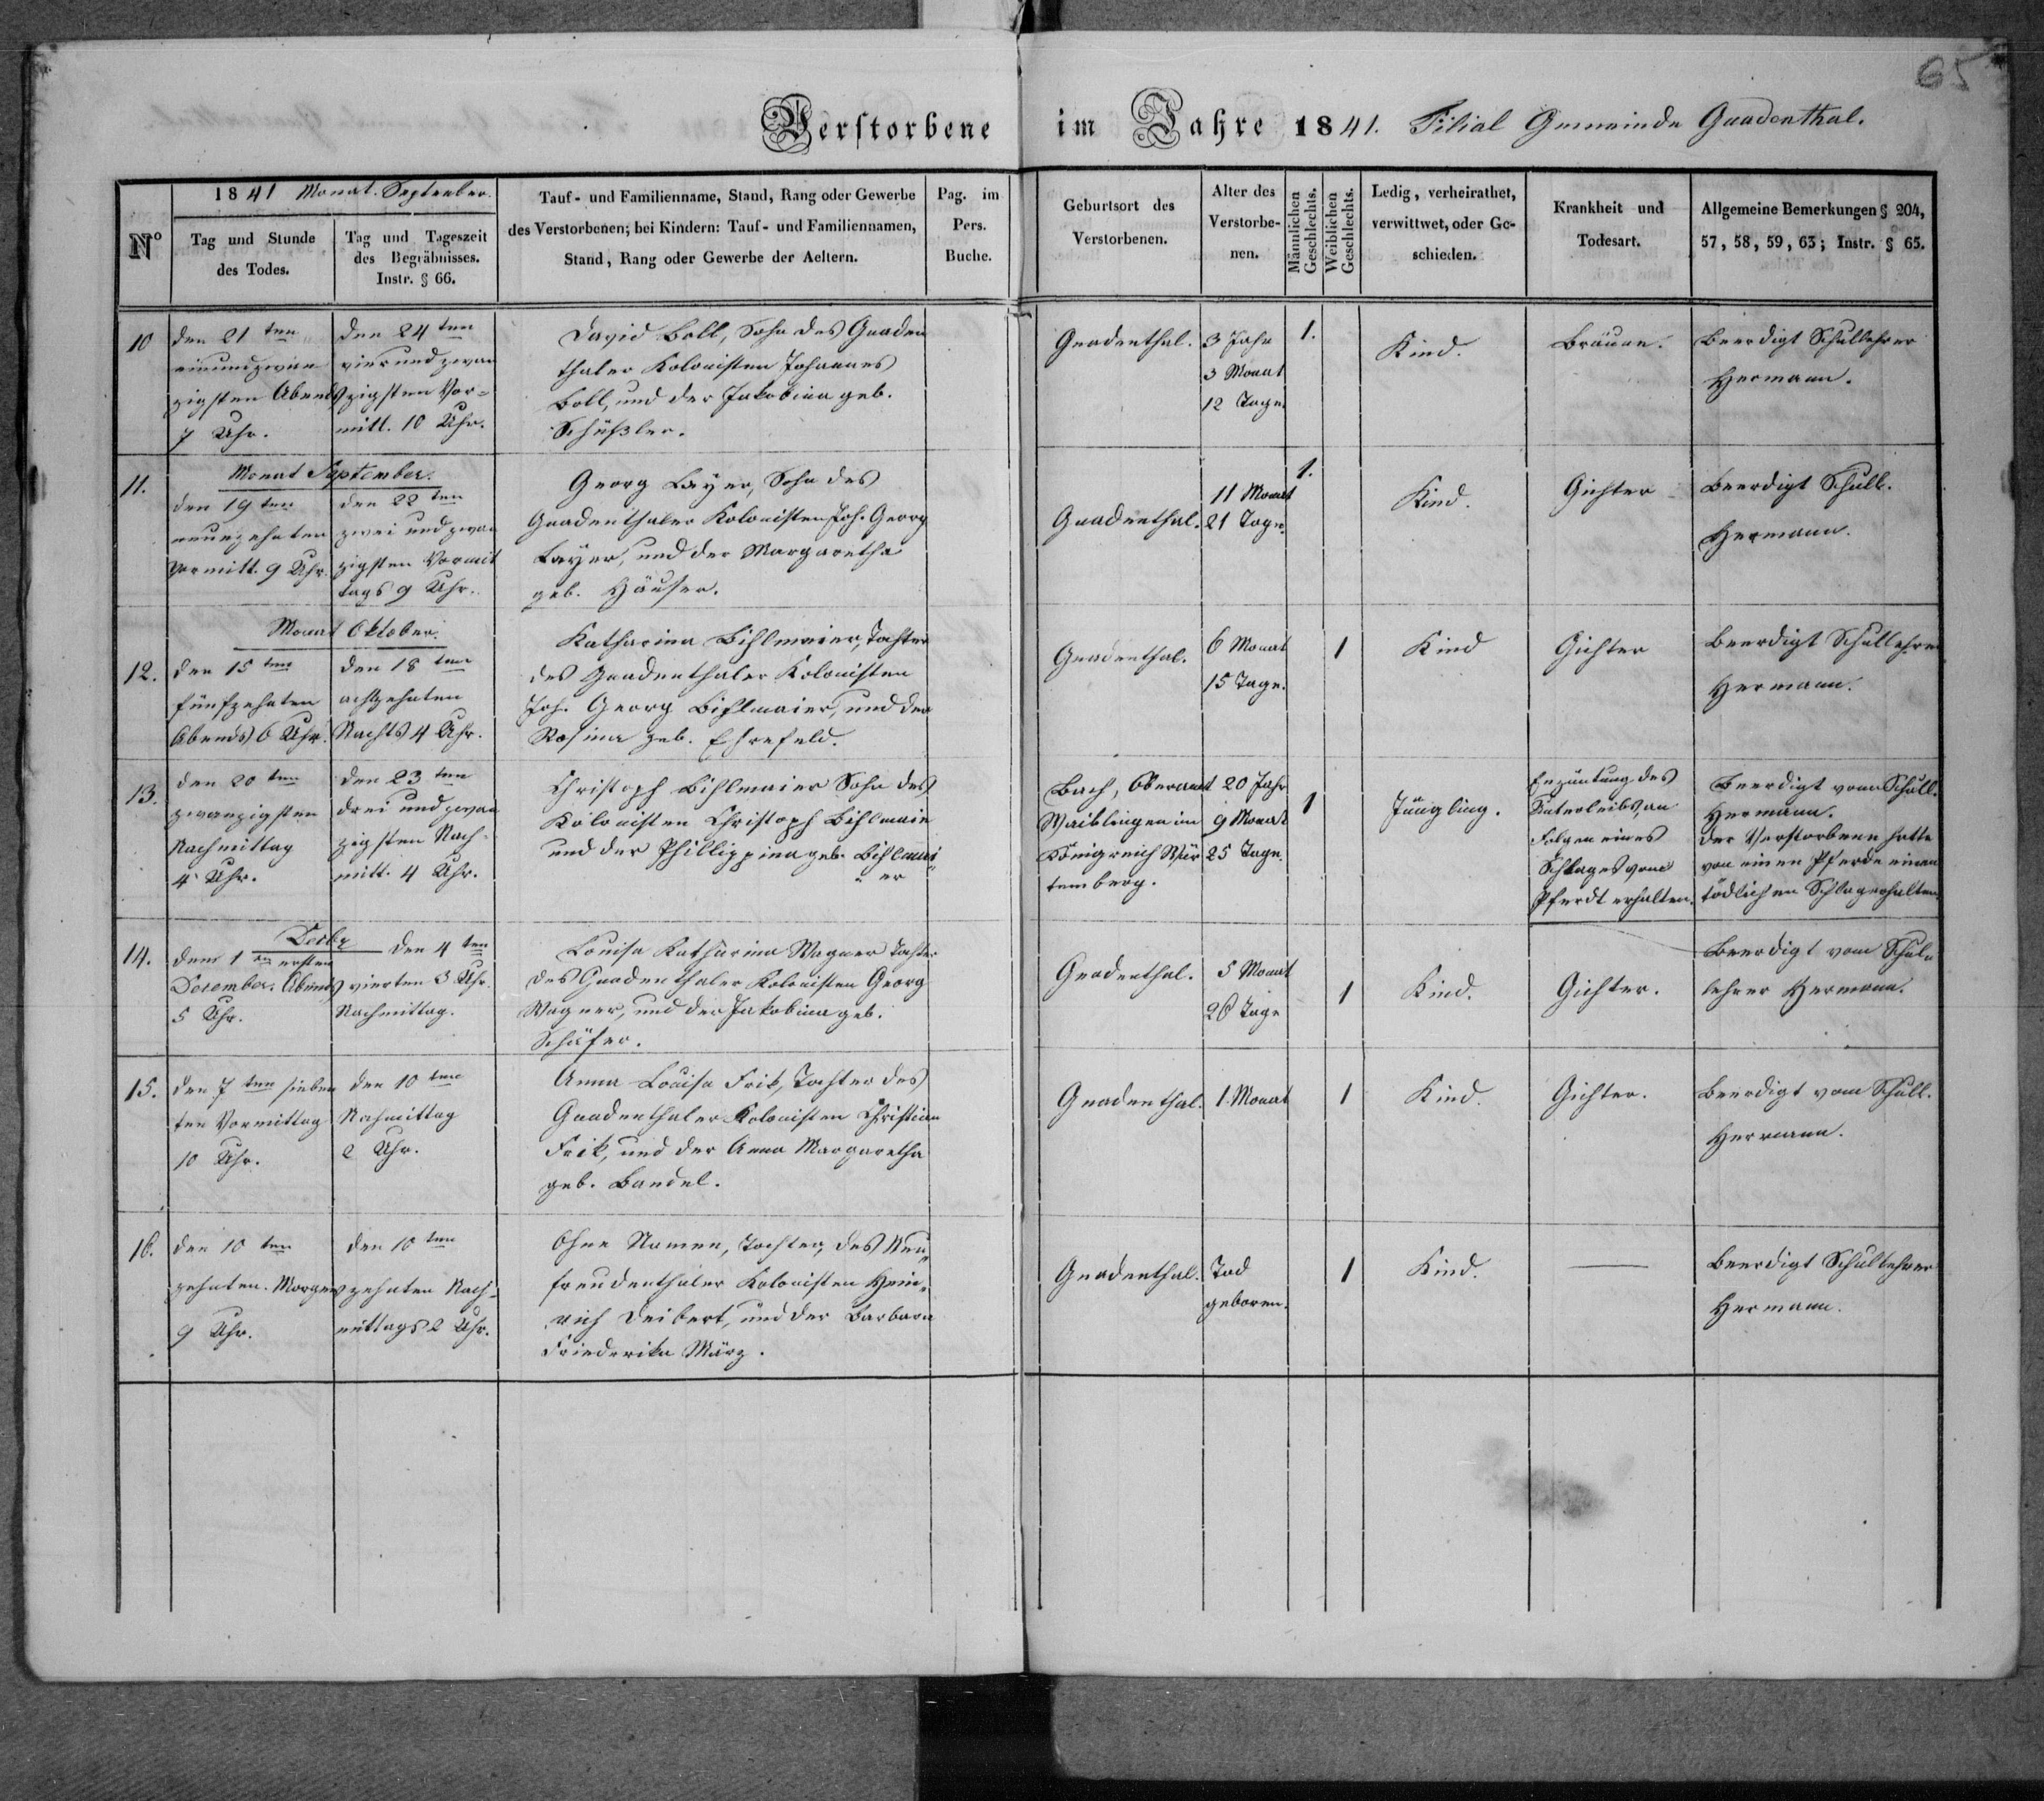 65
Verstorbene im Jahre 1841. Filial Gemeinde Gnadenthal.
No
1841 Monat. September.
Tag und Stunde
des Todes.
Tag und Tageszeit
des Begräbnisses.
Instr. § 66.
Tauf- und Familienname, Stand, Rang oder Gewerbe
des Verstorbenen; bei Kindern: Tauf- und Familiennamen,
Stand, Rang oder Gewerbe der Aeltern.
Pag. im
Pers.
Buche.
Geburtsort des
Verstorbenen.
Alter des
Verstorbe-
nen.
Männlichen
Geschlechts.
Weiblichen
Geschlechts.
Ledig, verheirathet,
verwittwet, oder Ge-
schieden.
Krankheit und
Todesart.
Allgemeine Bemerkungen § 204,
57, 58, 59, 63; Instr. § 65.
10
den 21 ten
einundzwan
zigsten Abends
7 Uhr.
den 24 ten
vierundzwan
zigsten Vor-
mitt. 10 Uhr.
David Boll, Sohn des Gnaden
thaler Kolonisten Johannes
Boll, und der Jakobina geb.
Schüßler.
Gnadenthal.
3 Jahr
3 Monat
12 Tage.
1.
Kind.
Bräune.
Beerdigt Schullehrer
Hermann.
11.
Monat September.
den 19 ten
neunzehnten
Vormitt. 9 Uhr.
den 22 ten
zwei und zwan
zigsten Vormit
tags 9 Uhr.
Georg Layer, Sohn des
Gnadenthaler Kolonisten Joh. Georg
Layer, und der Margaretha
geb. Häuser.
Gnadenthal.
11 Monat
21 Tage.
1.
Kind.
Gichter
Beerdigt Schull.
Hermann.
Monat Oktober.
12.
den 15 ten
fünfzehnten
Abends 6 Uhr.
den 18 ten
achtzehnten
Nachts 4 Uhr.
Katharina Bihlmaier, Tochter
des Gnadenthaler Kolonisten
Joh. Georg Bihlmaier, und der
Rosina geb. Ehrefeld.
Gnadenthal.
6 Monat
15 Tage.
1
Kind
Gichter
Beerdigt Schullehrer
Hermann.
13.
den 20 ten
zwanzigsten
Nachmittag
4 Uhr.
den 23 ten
drei und zwan
zigsten Nach-
mitt. 4 Uhr.
Christoph Bihlmaier Sohn des
Kolonisten Christoph Bihlmaier
und der Phillippina geb. Bihlmai
er
Bach, Oberamt
Waiblingen im
Königreich Wür
temberg.
20 Jahr
9 Monat
25 Tage.
1
Jüngling.
Enzüntung des
Unterleibs, an
Folgen eines
Schlages vom
Pferdt erhalten.
Beerdigt vom Schull.
Hermann.
Der Verstorbene hatte
von einen Pferde einen
tödlichen Schlag erhalten.
14.
Decbr
dem 1 ten ersten
December. Abends
5 Uhr.
den 4 ten
vierten 3 Uhr.
Nachmittag.
Louisa Katharina Wagner Tochter
des Gnadenthaler Kolonisten Georg
Wagner, und der Jakobina geb.
Schäfer.
Gnadenthal.
5 Monat
26 Tage
1
Kind.
Gichter.
Beerdigt vom Schul
lehrer Hermann.
15.
den 7 ten sieben
ten Vormittag
10 Uhr.
den 10 ten
Nachmittag
2 Uhr.
Anna Louisa Frik, Tochter des
Gnadenthaler Kolonisten Christian
Frik, und der Anna Margaretha
geb. Bandel.
Gnadenthal.
1 Monat
1
Kind.
Gichter.
Beerdigt vom Schull.
Hermann.
16.
den 10 ten
zehnten. Morgens
9 Uhr.
den 10 ten
zehnten Nach-
mittags 2 Uhr.
Ohne Namen, Tochter, des Neu
freudenthaler Kolonisten Hein
rich Deibert, und der Barbara
Friederika März.
Gnadenthal.
Tod
geboren.
1
Kind.
Beerdigt Schullehrer
Hermann.